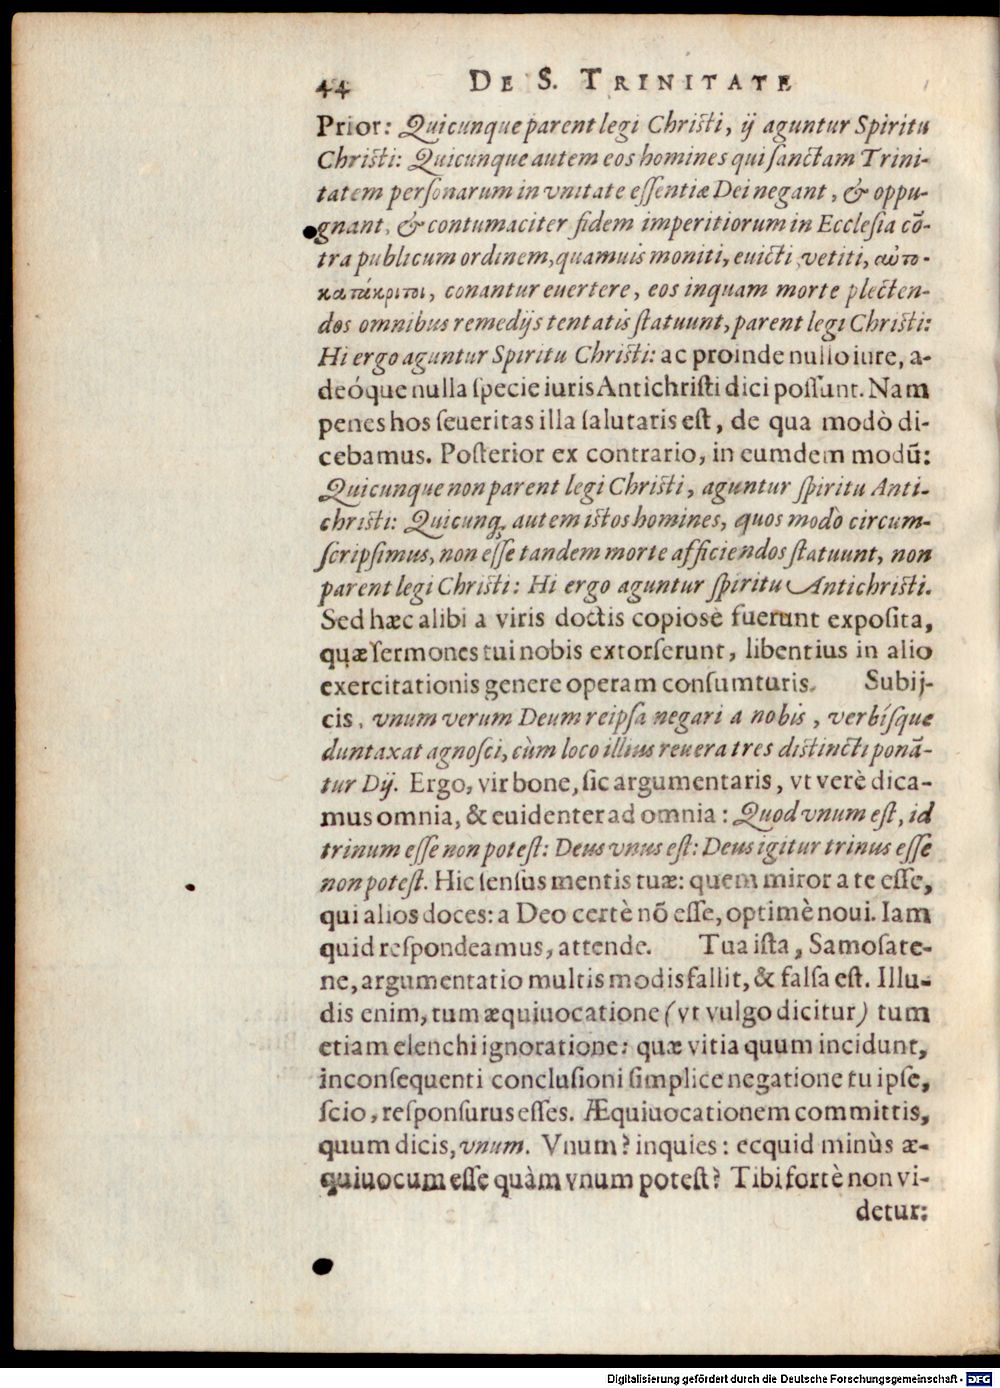 44 DE S. TRINITATE
Prior: Quicunque parent legi Christi, ij aguntur Spiritu
Christi: Quicunque autem eos homines qui sanctam Trini-
tatem personarum in vnitate essentiæ Dei negant, & oppu-
gnant, & contumaciter fidem imperitiorum in Ecclesia cō-
tra publicum ordinem, quamuis moniti, euicti, vetiti, αὐτο-
κατάκριτοι, conantur euertere, eos inquam morte plecten-
dos omnibus remedijs tentatis statuunt, parent legi Christi:
Hi ergo aguntur Spiritu Christi: ac proinde nullo iure, a-
deóque nulla specie iuris Antichristi dici possunt. Nam
penes hos seueritas illa salutaris est, de qua modò di-
cebamus. Posterior ex contrario, in eumdem modū:
Quicunque non parent legi Christi, aguntur spiritu Anti-
christi: Quicunq; autem istos homines, quos modò circum-
scripsimus, non esse tandem morte afficiendos statuunt, non
parent legi Christi: Hi ergo aguntur spiritu Antichristi.
Sed hæc alibi a viris doctis copiosè fuerunt exposita,
quæ sermones tui nobis extorserunt, libentius in alio
exercitationis genere operam consumturis. Subij-
cis, vnum verum Deum reipsa negari a nobis, verbísque
duntaxat agnosci, cùm loco illius reuera tres distincti ponā-
tur Dij. Ergo, vir bone, sic argumentaris, vt verè dica-
mus omnia, & euidenter ad omnia: Quod vnum est, id
trinum esse non potest: Deus vnus est: Deus igitur trinus esse
non potest. Hic sensus mentis tuæ: quem miror a te esse,
qui alios doces: a Deo certè nō esse, optimè noui. Iam
quid respondeamus, attende. Tua ista, Samosate-
ne, argumentatio multis modis fallit, & falsa est. Illu-
dis enim, tum æquiuocatione (vt vulgo dicitur) tum
etiam elenchi ignoratione: quæ vitia quum incidunt,
inconsequenti conclusioni simplice negatione tu ipse,
scio, responsurus esses. Æquiuocationem committis,
quum dicis, vnum. Vnum? inquies: ecquid minùs æ-
quiuocum esse quàm vnum potest? Tibi fortè non vi-
detur:
Digitalisierung gefördert durch die Deutsche Forschungsgemeinschaft - DFG